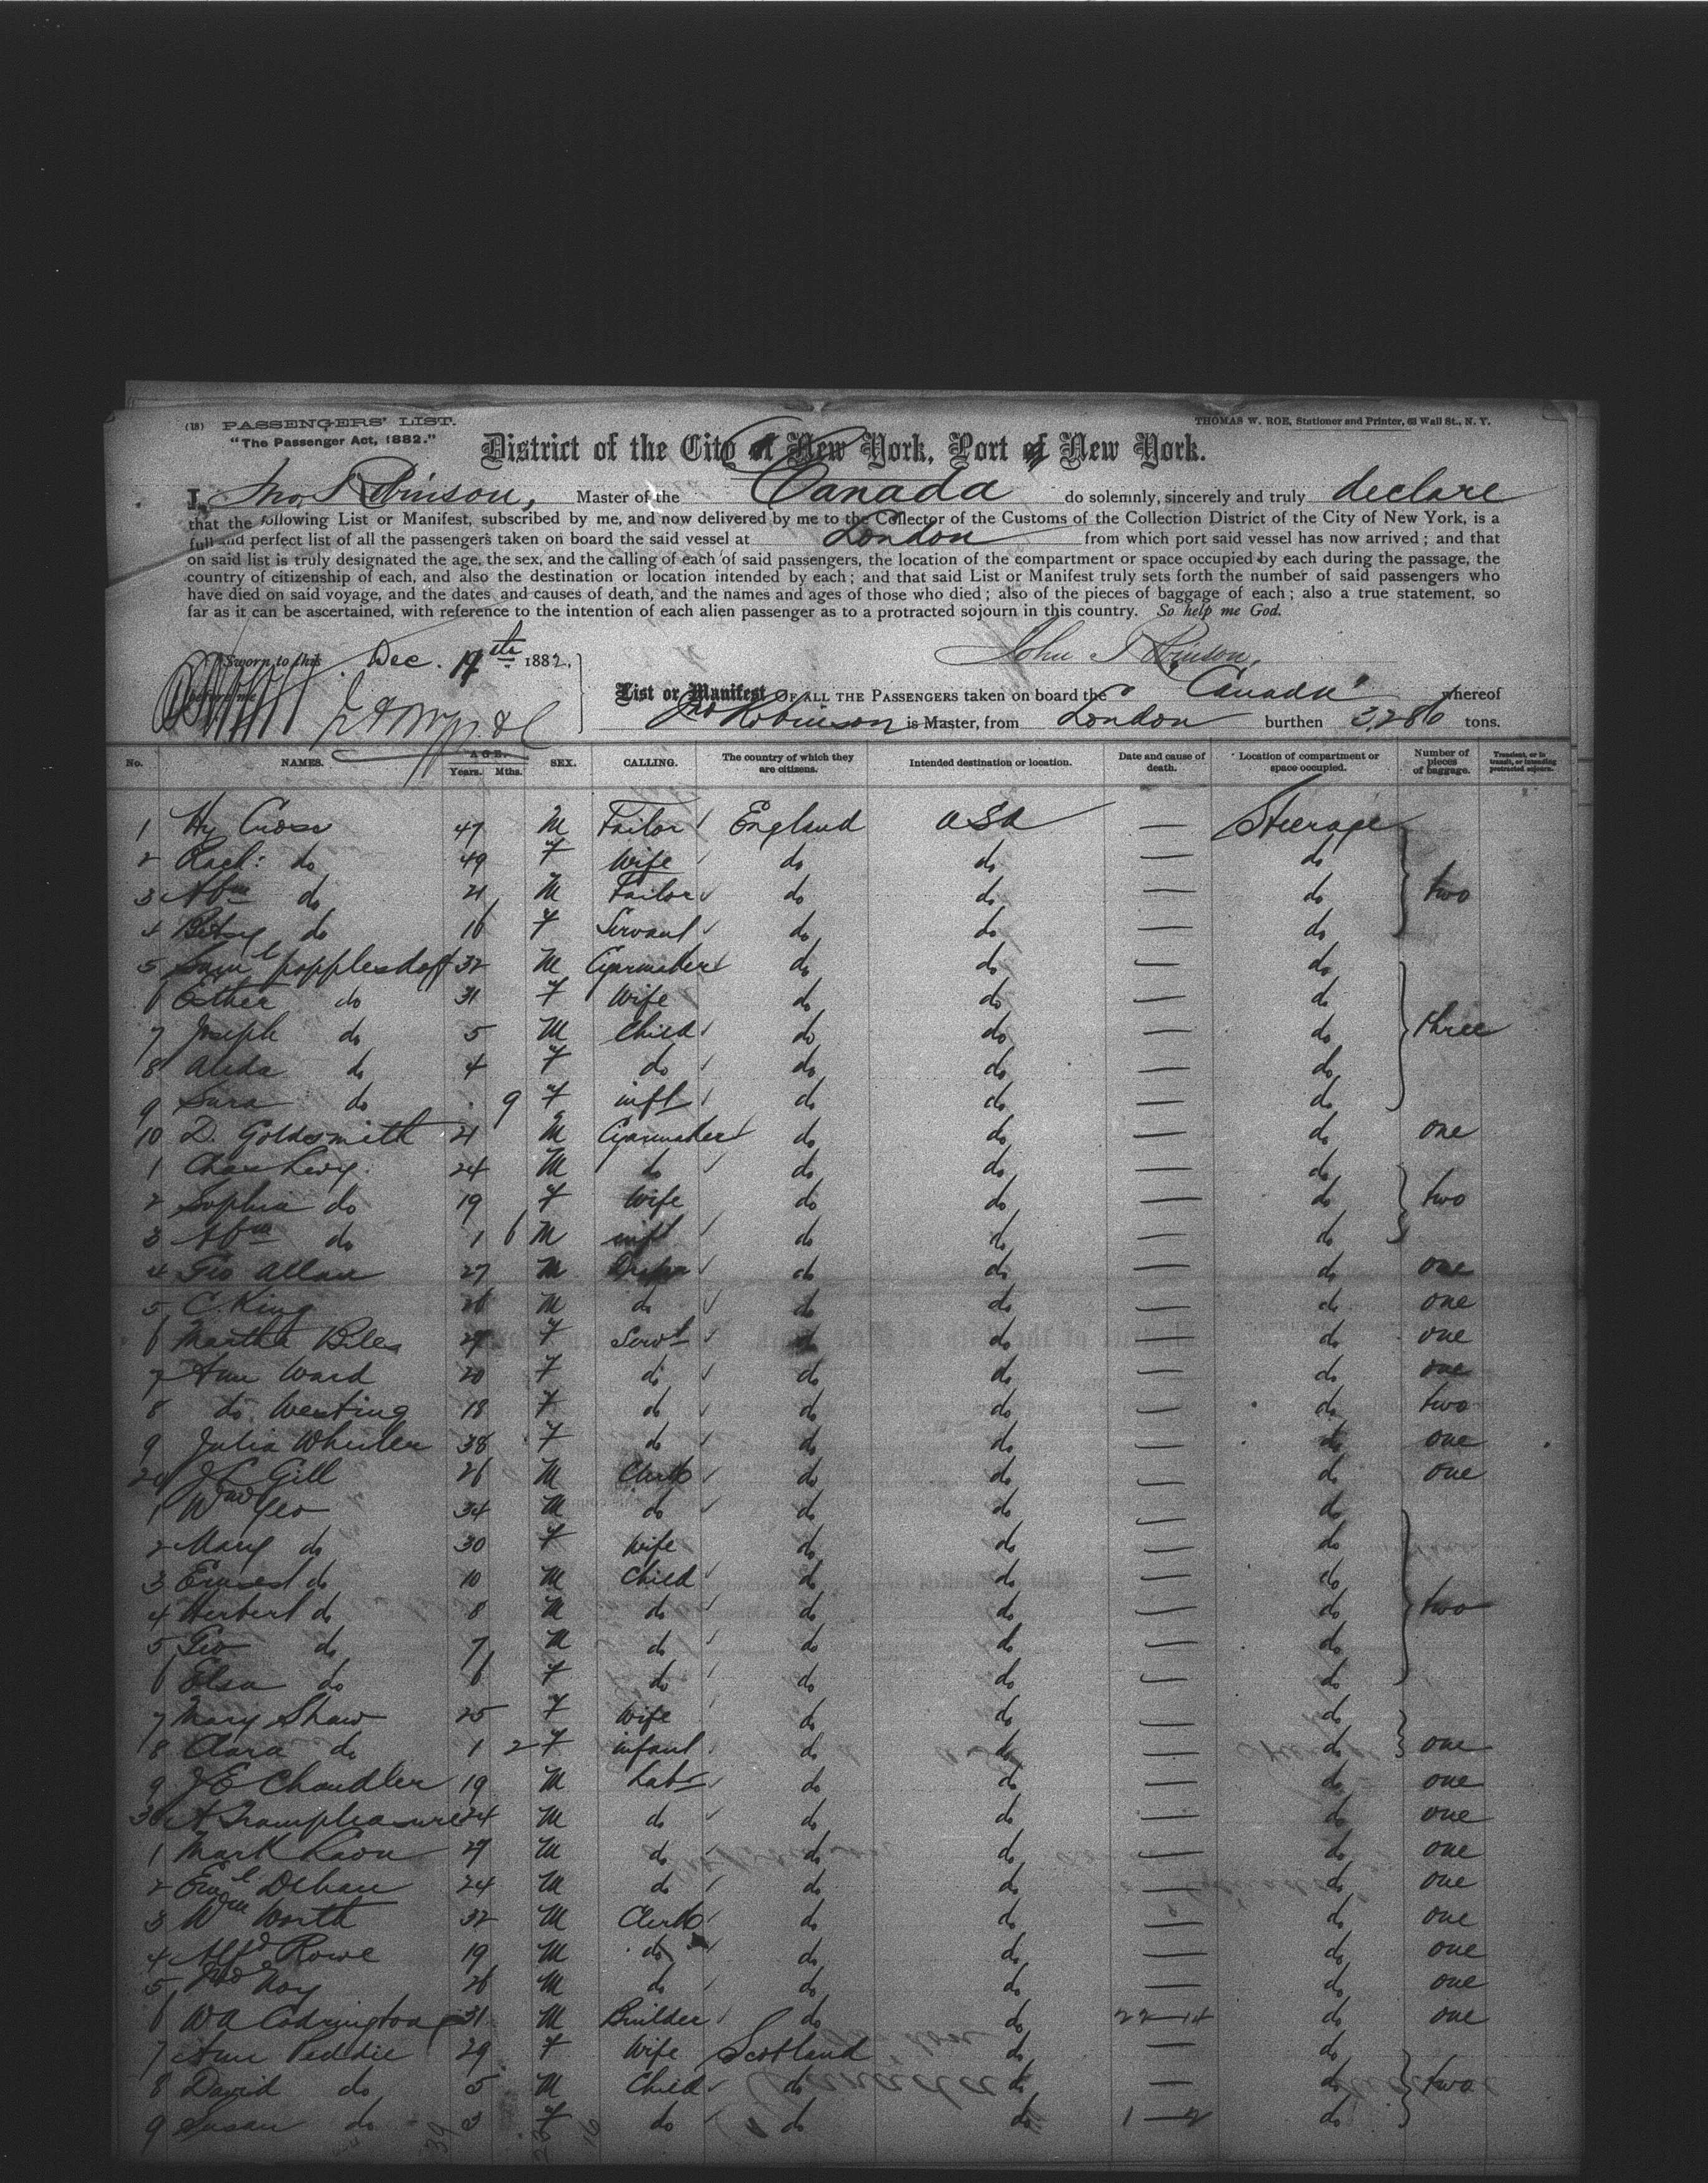 (18) PASSENGERS' LIST.
THOMAS W. ROE, Stationer and Printer, 63 Wall St., N. Y.
"The Passenger Act, 1882."
District of the City of New York, Port of New York.
I, Jno. Robinson, Master of the Canada do solemnly, sincerely and truly declare
that the following List or Manifest, subscribed by me, and now delivered by me to the Collector of the Customs of the Collection District of the City of New York, is a
full and perfect list of all the passengers taken on board the said vessel at London from which port said vessel has now arrived; and that
on said list is truly designated the age, the sex, and the calling of each of said passengers, the location of the compartment or space occupied by each during the passage, the
country of citizenship of each, and also the destination or location intended by each; and that said List or Manifest truly sets forth the number of said passengers who
have died on said voyage, and the dates and causes of death, and the names and ages of those who died; also of the pieces of baggage of each; also a true statement, so
far as it can be ascertained, with reference to the intention of each alien passenger as to a protracted sojourn in this country. So help me God.
Sworn to this Dec. th 1882,
before me
John Robinson,
List or Manifest OF ALL THE PASSENGERS taken on board the "Canada" whereof
Jno Robinson is Master, from London burthen 3,286 tons.
No. NAMES. AGE. Years. Mths. SEX. CALLING. The country of which they are citizens. Intended destination or location. Date and cause of death. Location of compartment or space occupied. Number of pieces of baggage. Transient, or in transit, or intending protracted sojourn.
1 Hy Cross 47 M Tailor England USA — Steerage
2 Rach: do 49 F Wife do do — do
3 Abm do 21 M Tailor do do — do two
4 Betsy do 16 F Servant do do — do
5 Saml popplesdoff 32 M Cigarmaker do do — do
6 Esther do 31 F Wife do do — do
7 Joseph do 5 M Child do do — do three
8 Alida do 4 F do do do — do
9 Sara do 9 F inft do do — do
10 D. Goldsmith 21 M Cigarmaker do do — do one
1 Chas Levy 24 M do do do — do
2 Sophia do 19 F Wife do do — do two
3 Abm do 1 6 M inft do do — do
4 Geo Allan 27 M do do — do one
5 C. King 26 M do do do — do one
6 Martha Biles F Servt do do — do one
7 Ann Ward 20 F do do do — do one
8 do Westing 18 F do do do — do two
9 Julia Wheeler 38 F do do do — do one
20 J L Gill 26 M Clerk do do — do one
1 Wm Geo 34 M do do do — do
2 Mary do 30 F Wife do do — do
3 Ernest do 10 M Child do do — do
4 Herbert do 8 M do do do — do two
5 Geo do 7 M do do do — do
6 Elsa do 6 F do do do — do
7 Mary Shaw 25 F Wife do do — do
8 Clara do 1 2 F infant do do — do one
9 J E Chandler 19 M Labr do do — do one
30 A Trampleasure 24 M do do do — do one
1 Mark Laon M do do do — do one
2 Eml Dehan 24 M do do do — do one
3 Wm Worth 32 M Clerk do do — do one
4 Alfd Rowe 19 M do do do — do one
5 Noy 26 M do do do — do one
6 W A Codrington 31 M Builder do do do one
7 Ann Peddie 29 F Wife Scotland do — do
8 David do 5 M Child do do — do two
9 Susan do 3 F do do do do